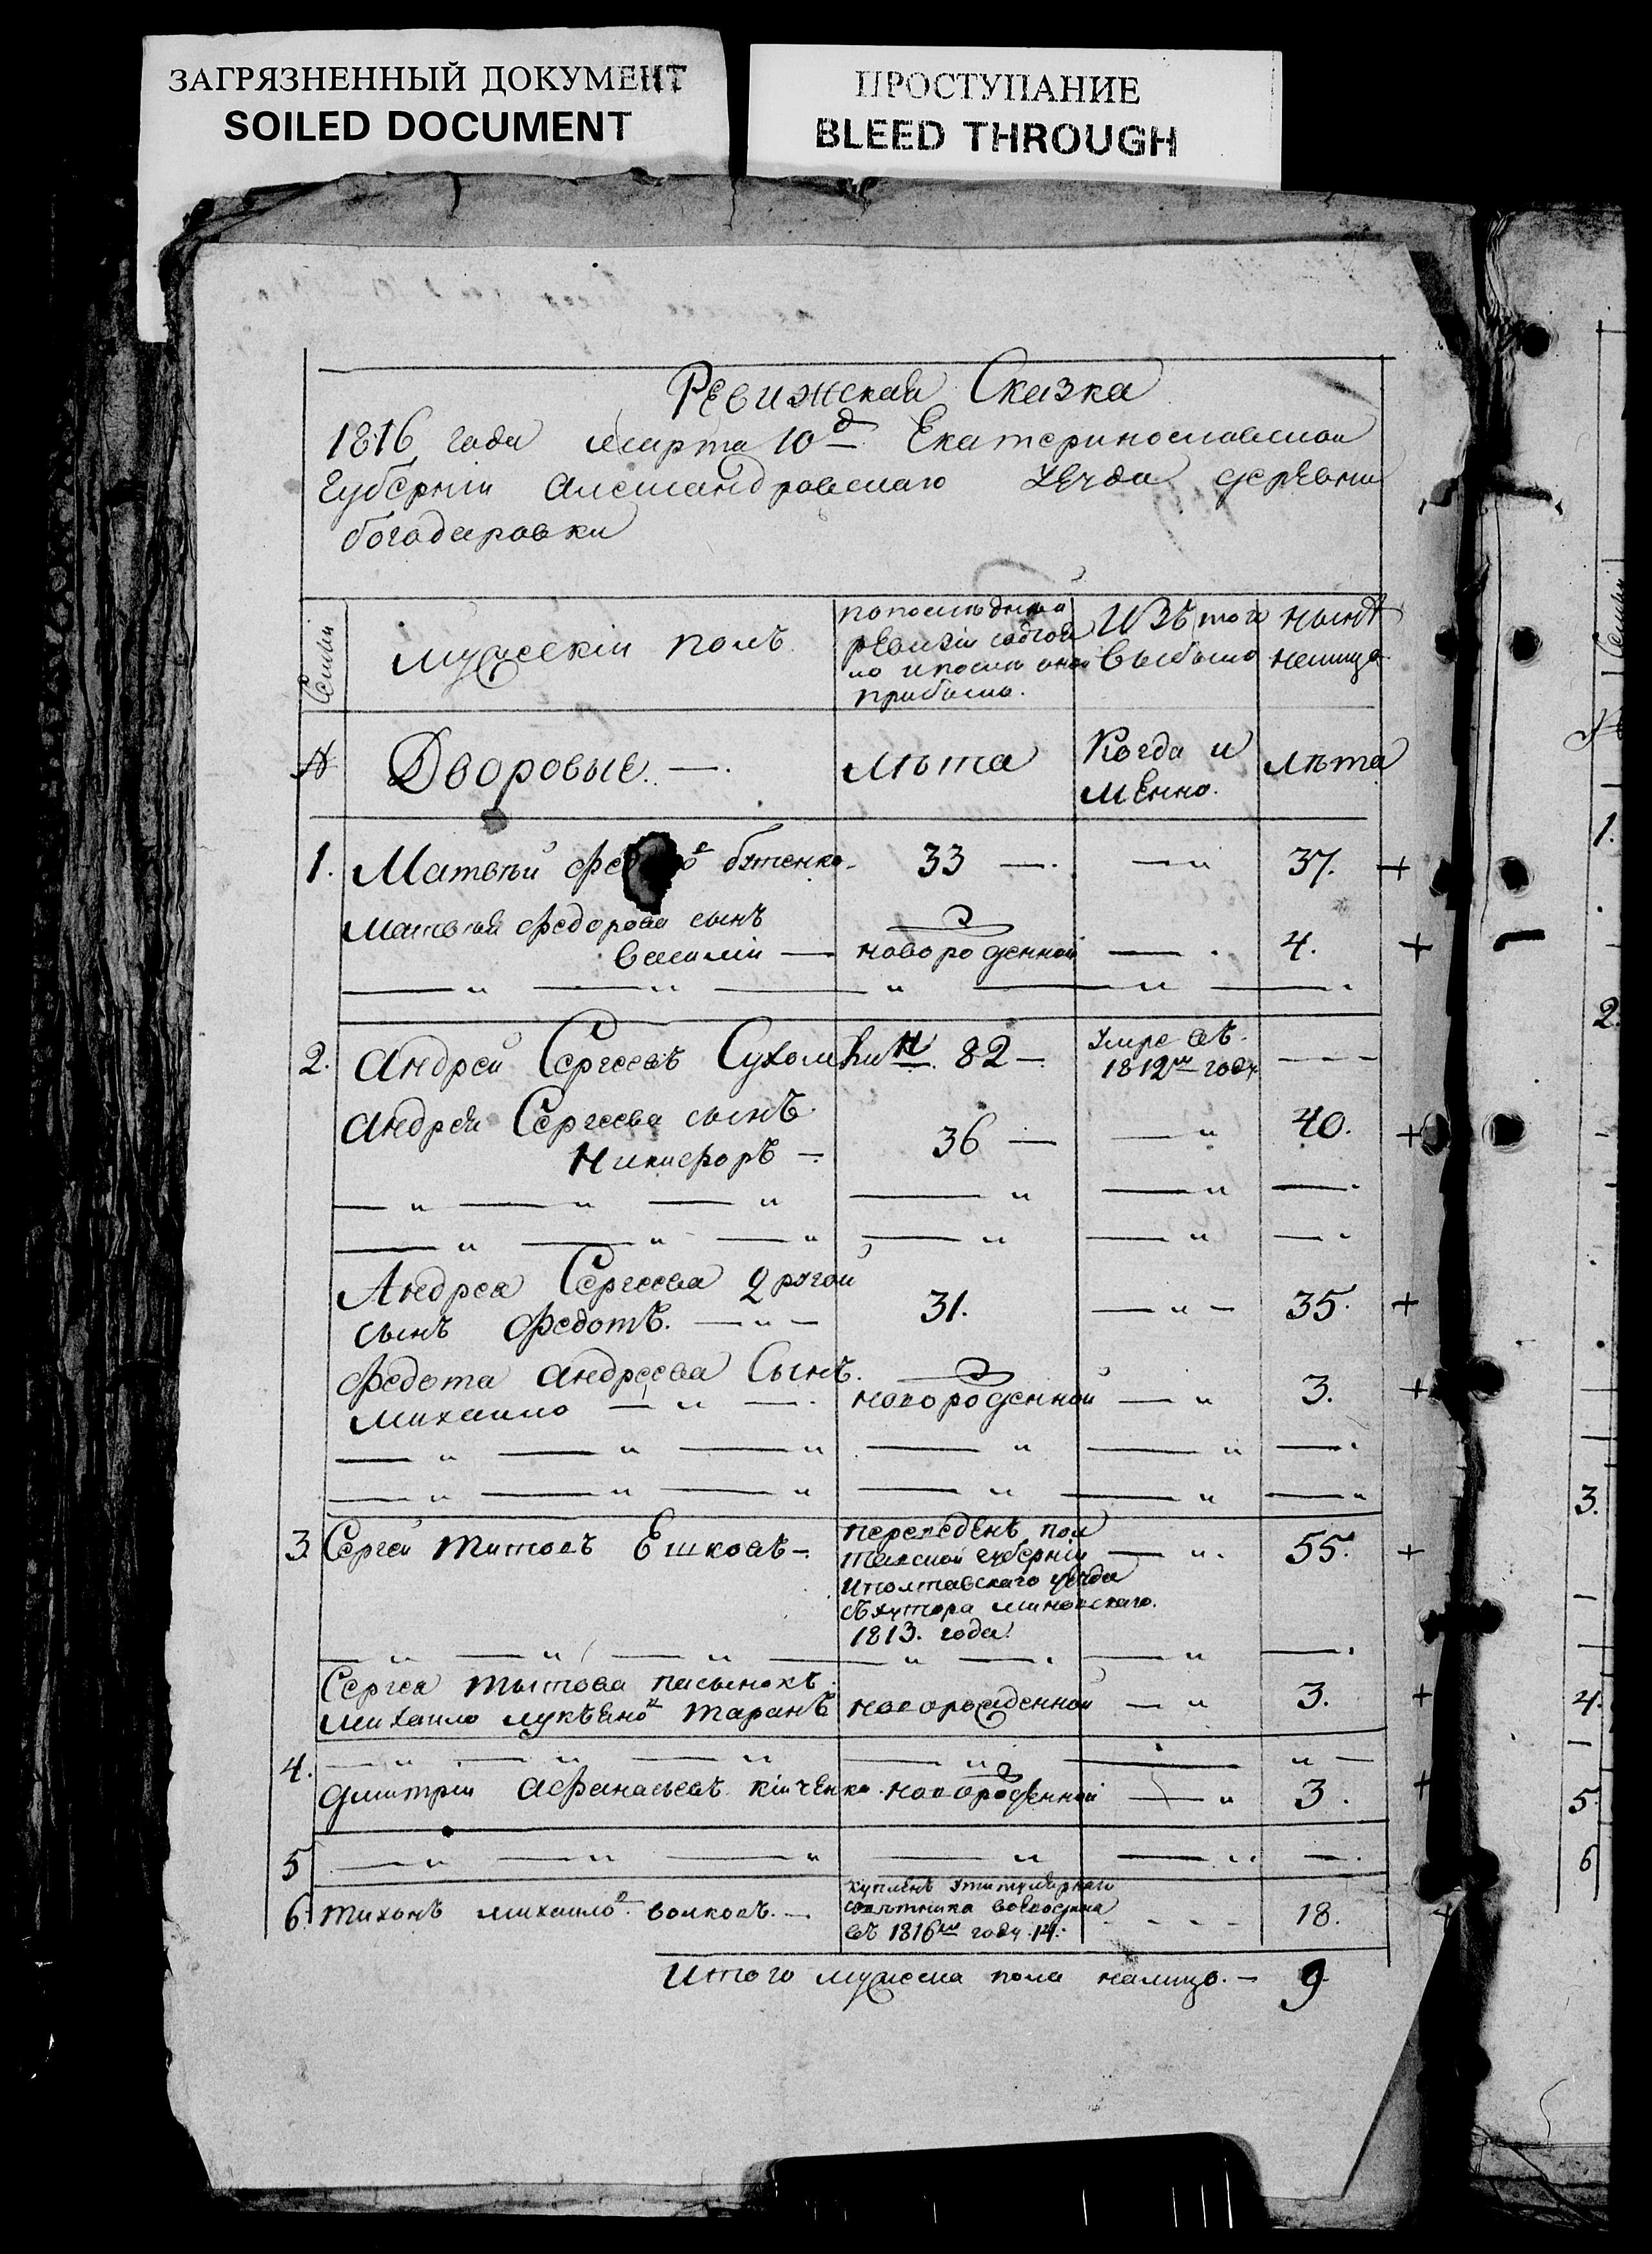 ЗАГРЯЗНЕННЫЙ ДОКУМЕНТ
SOILED DOCUMENT
ПРОСТУПАНИЕ
BLEED THROUGH
Ревижская Сказка
1816 года марта 10д Екатеринославской
Губерніи Александровскаго уезда деревни
богодаровки
Семьи
мужескій полъ
попоследней
ревизіи состоя
ло и после оной
прибыло.
Изъ того
выбыло
ныне
налицо
№ Дворовые. —. лѣта Когда и лѣта
менно.
1. Матвѣй Фе 33 —. — „ 37. +
Матвея Федорова сынъ
василій — новорожденной — . 4. +
2. Андрей Сергеевъ Сухомлин. 82 — Умре въ 1812м году — — —
Андрея Сергеева сынъ
Никифоръ —. 36 — — „ 40. +
Андрея Сергеева другой
сынъ Федотъ. — „ — 31. — „ — 35. +
Федота андреева Сынъ.
михаило — „ —. новорожденной — „ 3. +
3. Сергей титовъ Ешковъ —. переведенъ пол — „. 55. +
тавской губерніи
иполтавскаго уезда
съ хутора
1813. года.
Сергея тытова пасынокъ
михаило лукъяно таранъ новорожденной — „ 3. +
4.
дмитрій Афанасьевъ новорожденной — „ 3. +
5
6. тихонъ михаило волковъ. —. купленъ утитулярнаго
советника
въ 1816м году 14. - - - - 18. +
Итого мужеска пола налицо. — 9
Семьи
№
1.
2.
3.
4.
5.
6